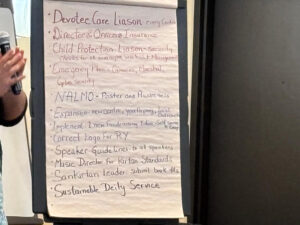 • Devotee Care Liason every Center
• Directors & Officers Insurance
• Child Protection Liason - Security
checks for all managers
• Emergency Plan - Cameras,
Cyber Security
• NALMO - Poster and Awareness
• Expansion - new centre,
Implement 1 new Fundraising Idea
Correct Logo for RY
Speaker Guidelines to all speakers
Music Director for Kirtan Standards
Sankirtan Leader submit book
• Sustainable Deity Service